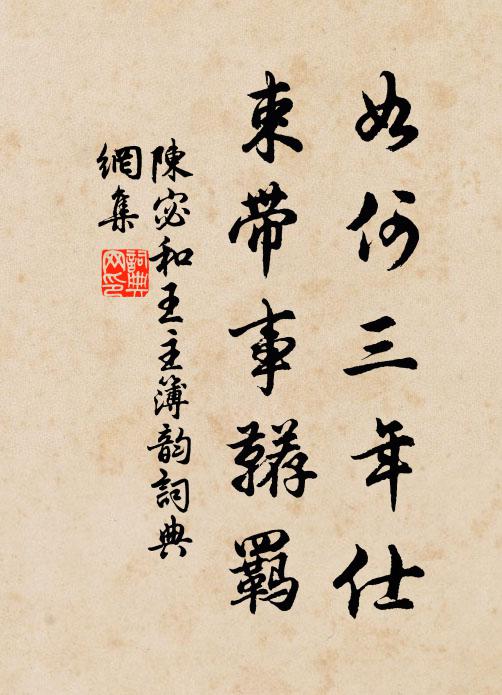 如何三年仕
束帶事韉羈
陳宓和王主簿韵詞典
網集
詞典
网印